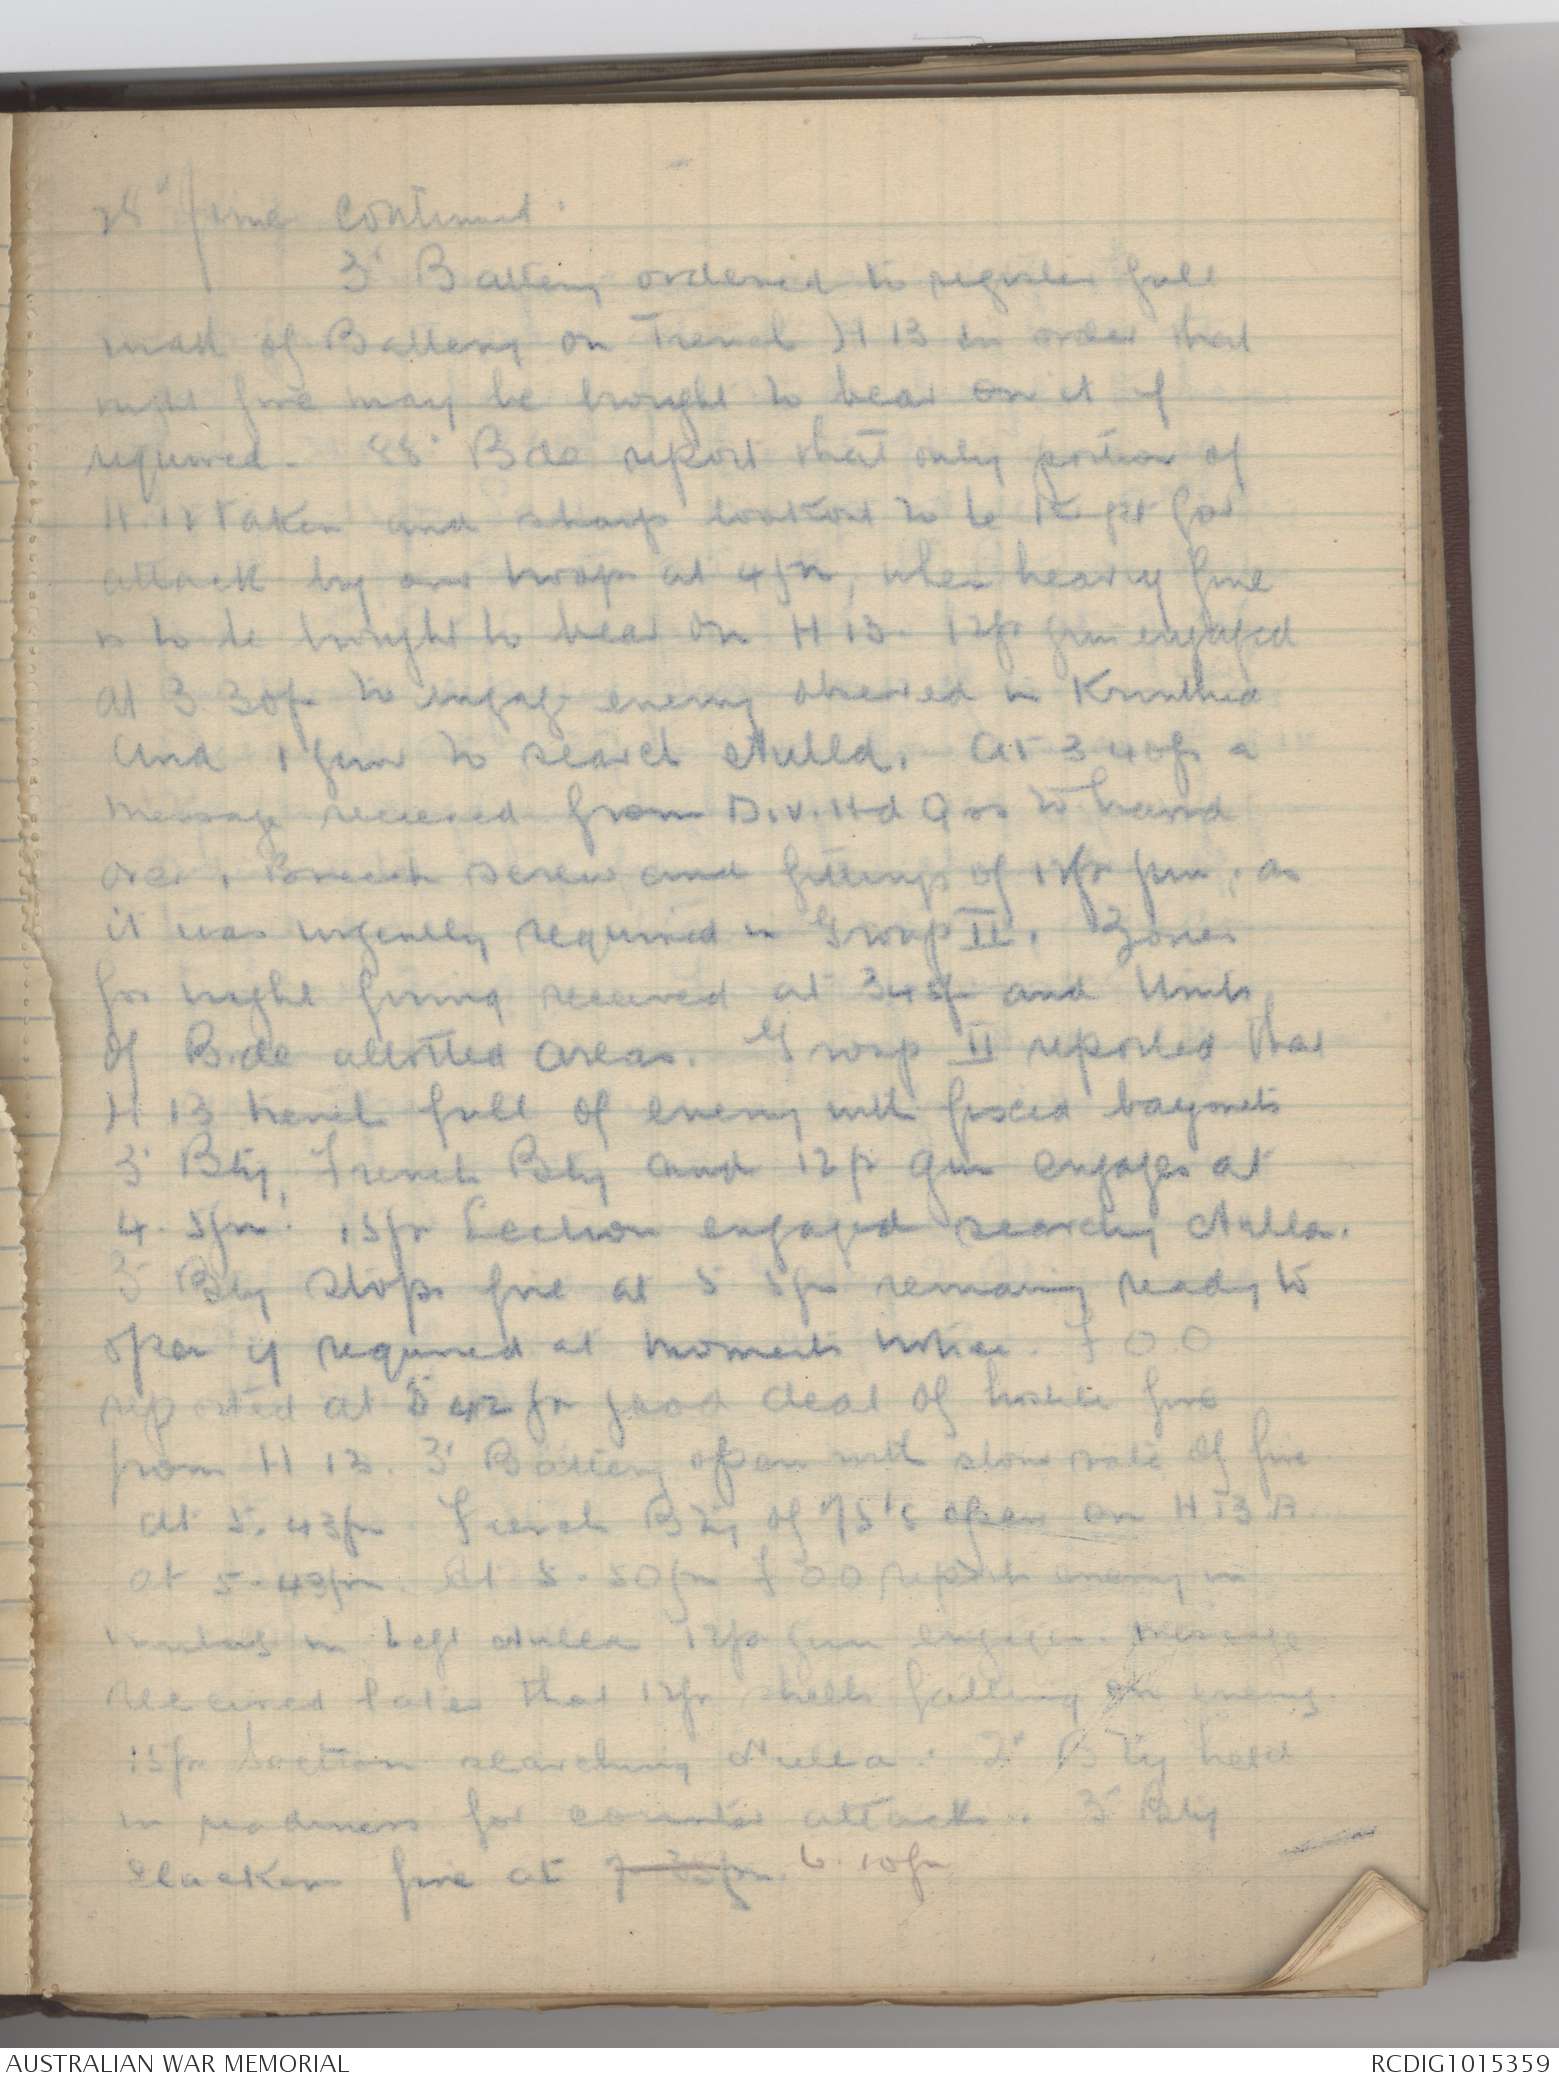 28th June continued.
3rd Battery ordered to register full
mask of Battery on Trench H 13 in order that
night fire may be brought to bear on it if
required. 88th Bde report that only portion of
H 12 taken and sharp lookout to be kept for
attack by our troops at 4 pm, when heavy fire
is to be brought to bear on H 13. 12pr gun engaged
at 3 30p to engage enemy observed in Krinthia
and 1 gun to search Nulla. At 3 40p a
message received from Div. Hd Qrs to hand
over 1 Breech screw and fittings of 12pr gun, as
it was urgently required in Group II. Zones
for night firing received at 345p and Units
of Bde allotted areas. Group II reported that
H 13 trench full of enemy with fixed bayonets
3' Bty, French Bty and 12pr gun engages at
4. 5pm. 15pr Section engaged searching Nulla.
3' Bty stops fire at 5 5pm remaining ready to
open if required at moments notice. F O O
reported at 5 42 pm good deal of hostile fire
from H 13. 3' Battery open with slow rate of fire
at 5.43pm French Bty of 75's open on H 13 A
at 5.43pm. At 5.50pm F O O reports enemy in
in left Nulla 12pr gun engages. Message
received later that 12pr shells falling on enemy.
15pr Section searching Nulla. 2' Bty held
in readiness for counter attack. 3' Bty
slacken fire at 7 30pm. 6.10pm
AUSTRALIAN WAR MEMORIAL
RCDIG1015359